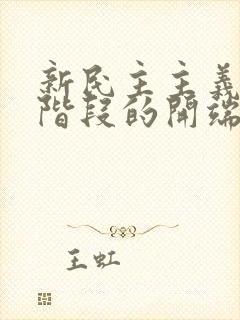 新民主主義
階段的開端
王虹